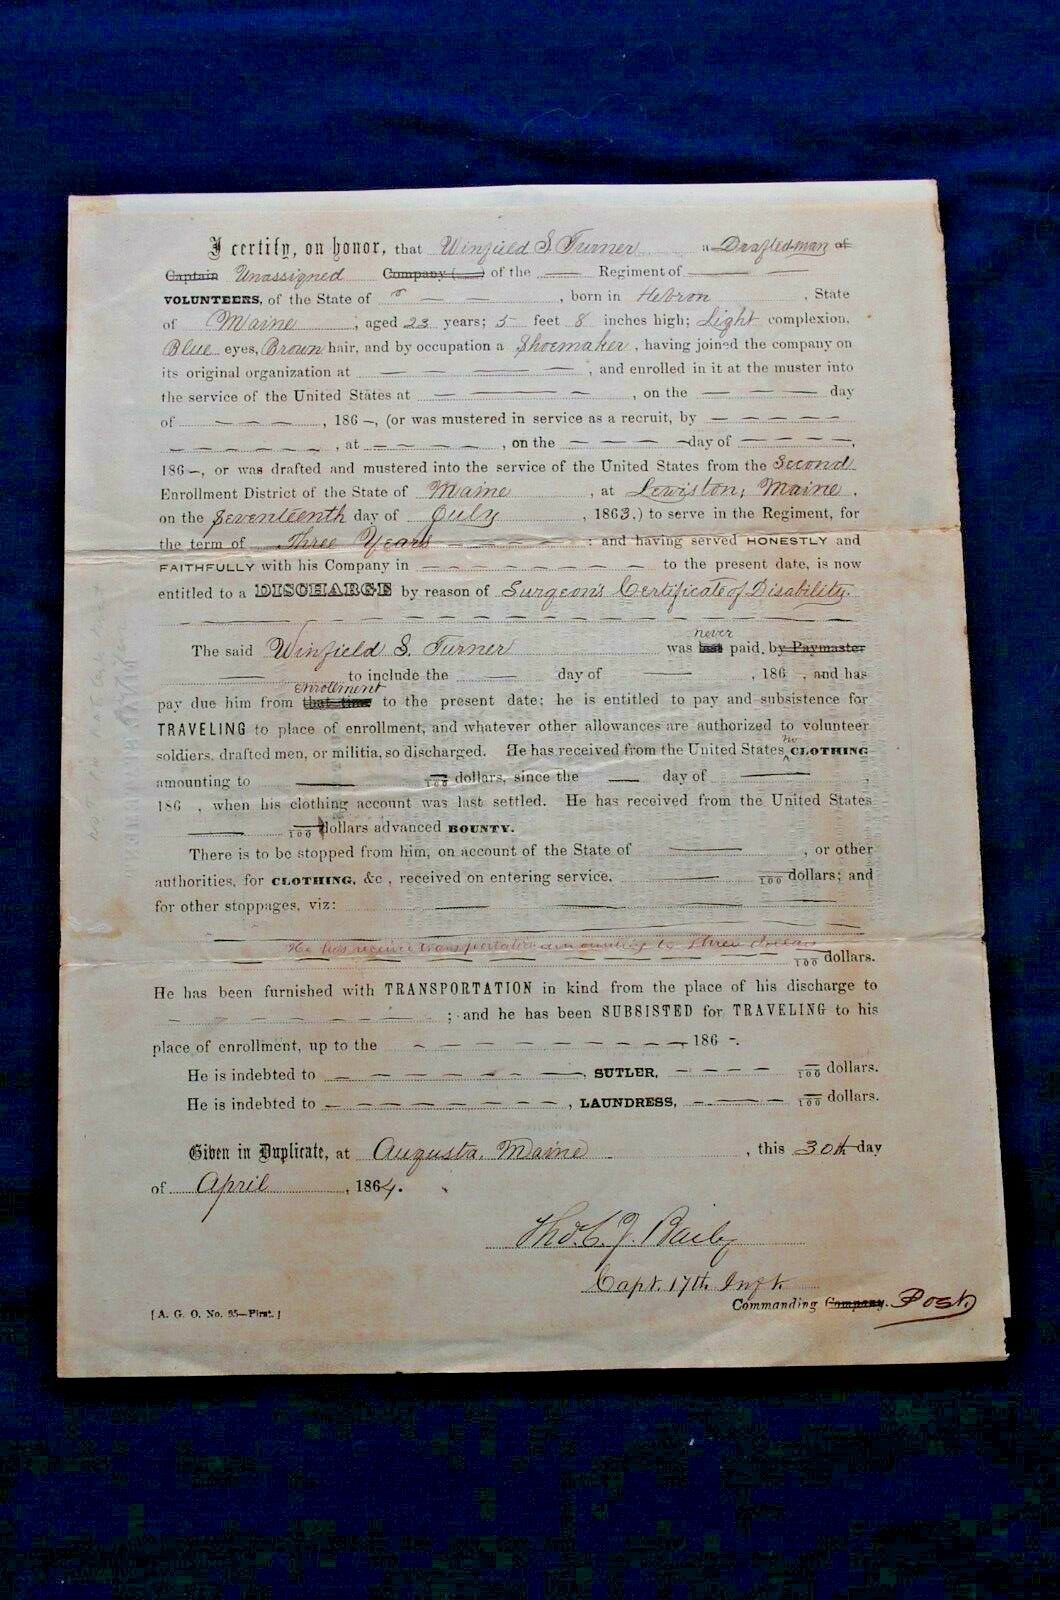 I certify, on honor, that Winfield S. Turner a Drafted man of
Captain Unassigned Company ( ) of the — Regiment of — —
VOLUNTEERS, of the State of — — —, born in Hebron, State
of Maine, aged 23 years; 5 feet 8 inches high; Light complexion,
Blue eyes, Brown hair, and by occupation a Shoemaker, having joined the company on
its original organization at — — — — —, and enrolled in it at the muster into
the service of the United States at — — — — —, on the — — — day
of — — — —, 186 —, (or was mustered in service as a recruit, by — — — — —
— — — — — —, at — — — —, on the — — — — day of — — — —,
186 —, or was drafted and mustered into the service of the United States from the Second
Enrollment District of the State of Maine, at Lewiston, Maine,
on the Seventeenth day of July, 1863,) to serve in the Regiment, for
the term of Three Years — — — — : and having served HONESTLY and
FAITHFULLY with his Company in — — — — — — — to the present date, is now
entitled to a DISCHARGE by reason of Surgeon's Certificate of Disability.
The said Winfield S. Turner was last never paid, by Paymaster
— to include the — day of —, 186 , and has
pay due him from that time enrollment to the present date; he is entitled to pay and subsistence for
TRAVELING to place of enrollment, and whatever other allowances are authorized to volunteer
soldiers, drafted men, or militia, so discharged. He has received from the United States no CLOTHING
amounting to — /100 dollars, since the — day of —,
186 , when his clothing account was last settled. He has received from the United States
— /100 dollars advanced BOUNTY.
There is to be stopped from him, on account of the State of —, or other
authorities, for CLOTHING, &c , received on entering service, — /100 dollars; and
for other stoppages, viz: — — — —
He has receive transportation amounting to three dollars
— — — — — — /100 dollars.
He has been furnished with TRANSPORTATION in kind from the place of his discharge to
— — — — — — — ; and he has been SUBSISTED for TRAVELING to his
place of enrollment, up to the — — — — — — — 186 -.
He is indebted to — — — — — —, SUTLER, — — — — /100 dollars.
He is indebted to — — — — — — —, LAUNDRESS, — — — — /100 dollars.
Given in Duplicate, at Augusta, Maine, this 30th day
of April, 1864.
Capt. 17th Inft.
Commanding Company. Post.
[ A. G. O. No. 95—First. ]